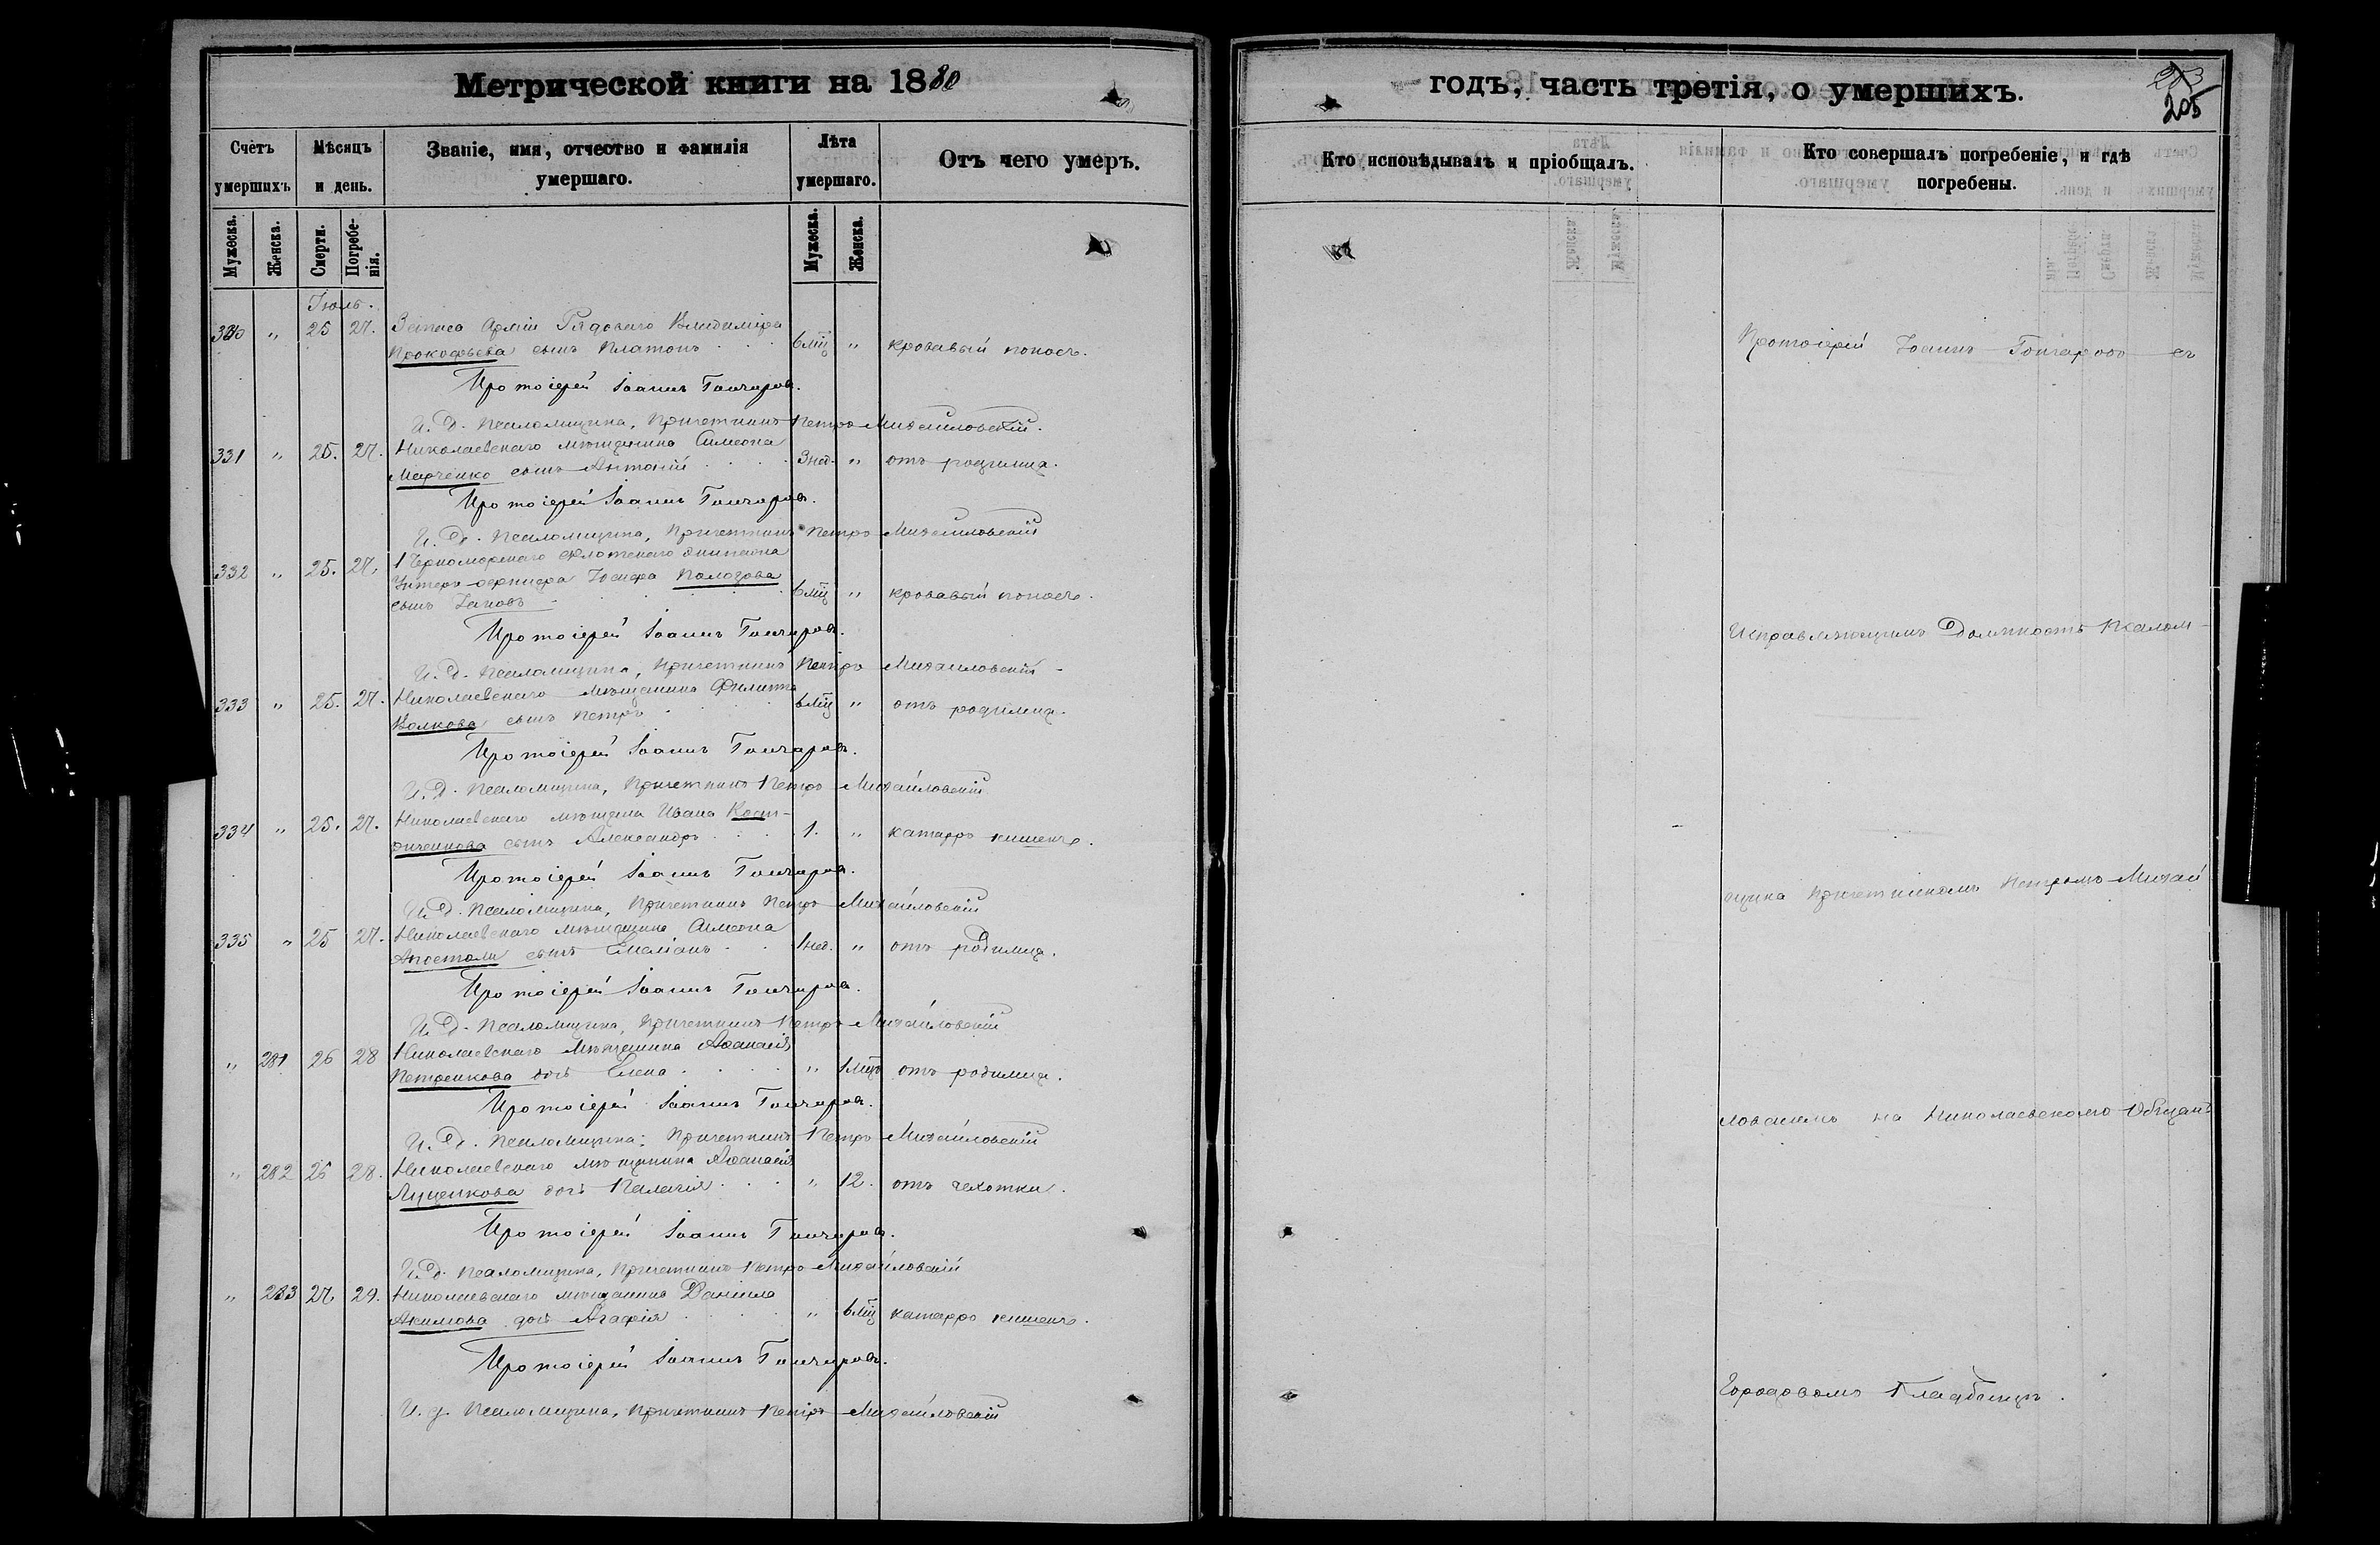 Метрической книги на 1880
годъ, часть третія, о умершихъ.
205
Счетъ умершихъ
Мѣсяцъ и день.
Званіе, имя, отчество и фамилія умершаго.
Лѣта умершаго.
Отъ чего умеръ.
Кто исповѣдывалъ и пріобщалъ.
Кто совершалъ погребеніе, и гдѣ погребены.
Мужеска.
Женска.
Смерти.
Погребенія.
Мужеска.
Женска.
Іюль.
330 " 25 27. Запаса Арміи Рядоваго Владиміра
Прокофьева сынъ Платонъ 6 мцъ " кровавый поносъ.
Протоіерей Іоаннъ Гончаровъ.
И. Д. Псаломщика, Причетникъ Петръ Михайловскій.
331 " 25. 27. Николаевскаго мѣщанина Симеона
Марченко сынъ Антоній 3 нед. " отъ родимца.
Протоіерей Іоаннъ Гончаровъ.
И. Д. Псаломщика, Причетникъ Петръ Михайловскій
332 " 25. 27. 1 Черноморскаго флотскаго экипажа
Унтеръ-офицера Іосифа Колодзова
сынъ Іаковъ 6 мцъ " кровавый поносъ.
Протоіерей Іоаннъ Гончаровъ.
И. Д. Псаломщика, Причетникъ Петръ Михайловскій
333 " 25. 27. Николаевскаго мѣщанина Филиппа
Волкова сынъ Петръ 6 мцъ " отъ родимца.
Протоіерей Іоаннъ Гончаровъ.
И. Д. Псаломщика, Причетникъ Петръ Михайловскій
334 " 25. 27. Николаевскаго мѣщанина Ивана
сынъ Александръ 1. " катарръ кишекъ.
Протоіерей Іоаннъ Гончаровъ.
И. Д. Псаломщика, Причетникъ Петръ Михайловскій
335 " 25 27. Николаевскаго мѣщанина Симеона
Апостоли сынъ Емеліанъ 1 нед. " отъ родимца.
Протоіерей Іоаннъ Гончаровъ.
И. Д. Псаломщика, Причетникъ Петръ Михайловскій
" 281 26 28 Николаевскаго Мѣщанина Аѳанасія
Петренкова дочь Елена " 1 мцъ отъ родимца.
Протоіерей Іоаннъ Гончаровъ.
И. Д. Псаломщика, Причетникъ Петръ Михайловскій
" 282 26 28. Николаевскаго мѣщанина Аѳанасія
Луценкова дочь Пелагія " 12. отъ чахотки.
Протоіерей Іоаннъ Гончаровъ.
И. Д. Псаломщика, Причетникъ Петръ Михайловскій
" 283 27. 29. Николаевскаго мѣщанина Даніила
Акимова дочь Агафія " 6 мцъ катарръ кишекъ.
Протоіерей Іоаннъ Гончаровъ.
И. д. Псаломщика, Причетникъ Петръ Михайловскій
Протоіерей Іоаннъ Гончаровъ съ
Исправляющимъ Должность Псалом-
щика Причетникомъ Петромъ Михай
ловскимъ на Николаевскомъ
Городовомъ Кладбищѣ.